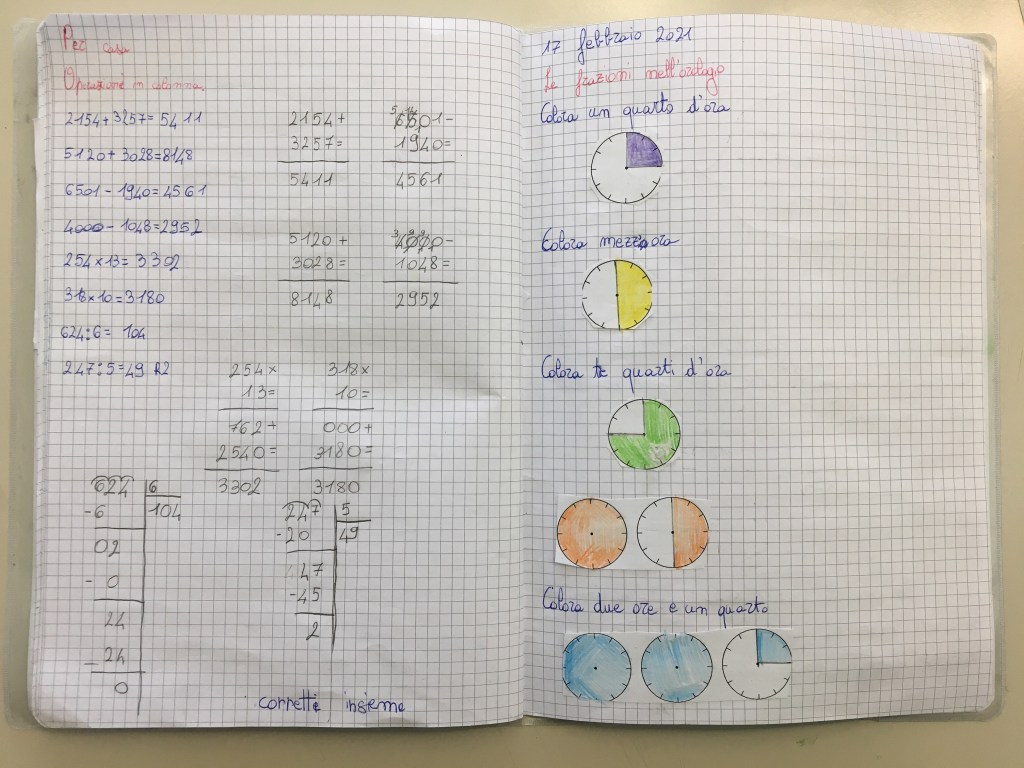 Per casa
Operazioni in colonna.
2154+3257=5411
5120+3028=8148
6501-1940=4561
4000-1048=2952
254×13=3302
318×10=3180
624:6=104
247:5=49 R2
2154+
3257=
5411
6501-
1940=
4561
5120+
3028=
8148
4000-
1048=
2952
254×
13=
762+
2540=
3302
318×
10=
000+
3180=
3180
624 6
-6 104
02
-0
24
-24
0
247 5
-20 49
47
-45
2
corretti insieme
17 febbraio 2021
Le frazioni nell'orologio
Colora un quarto d'ora
Colora mezz'ora
Colora quarti d'ora
Colora due ore e un quarto